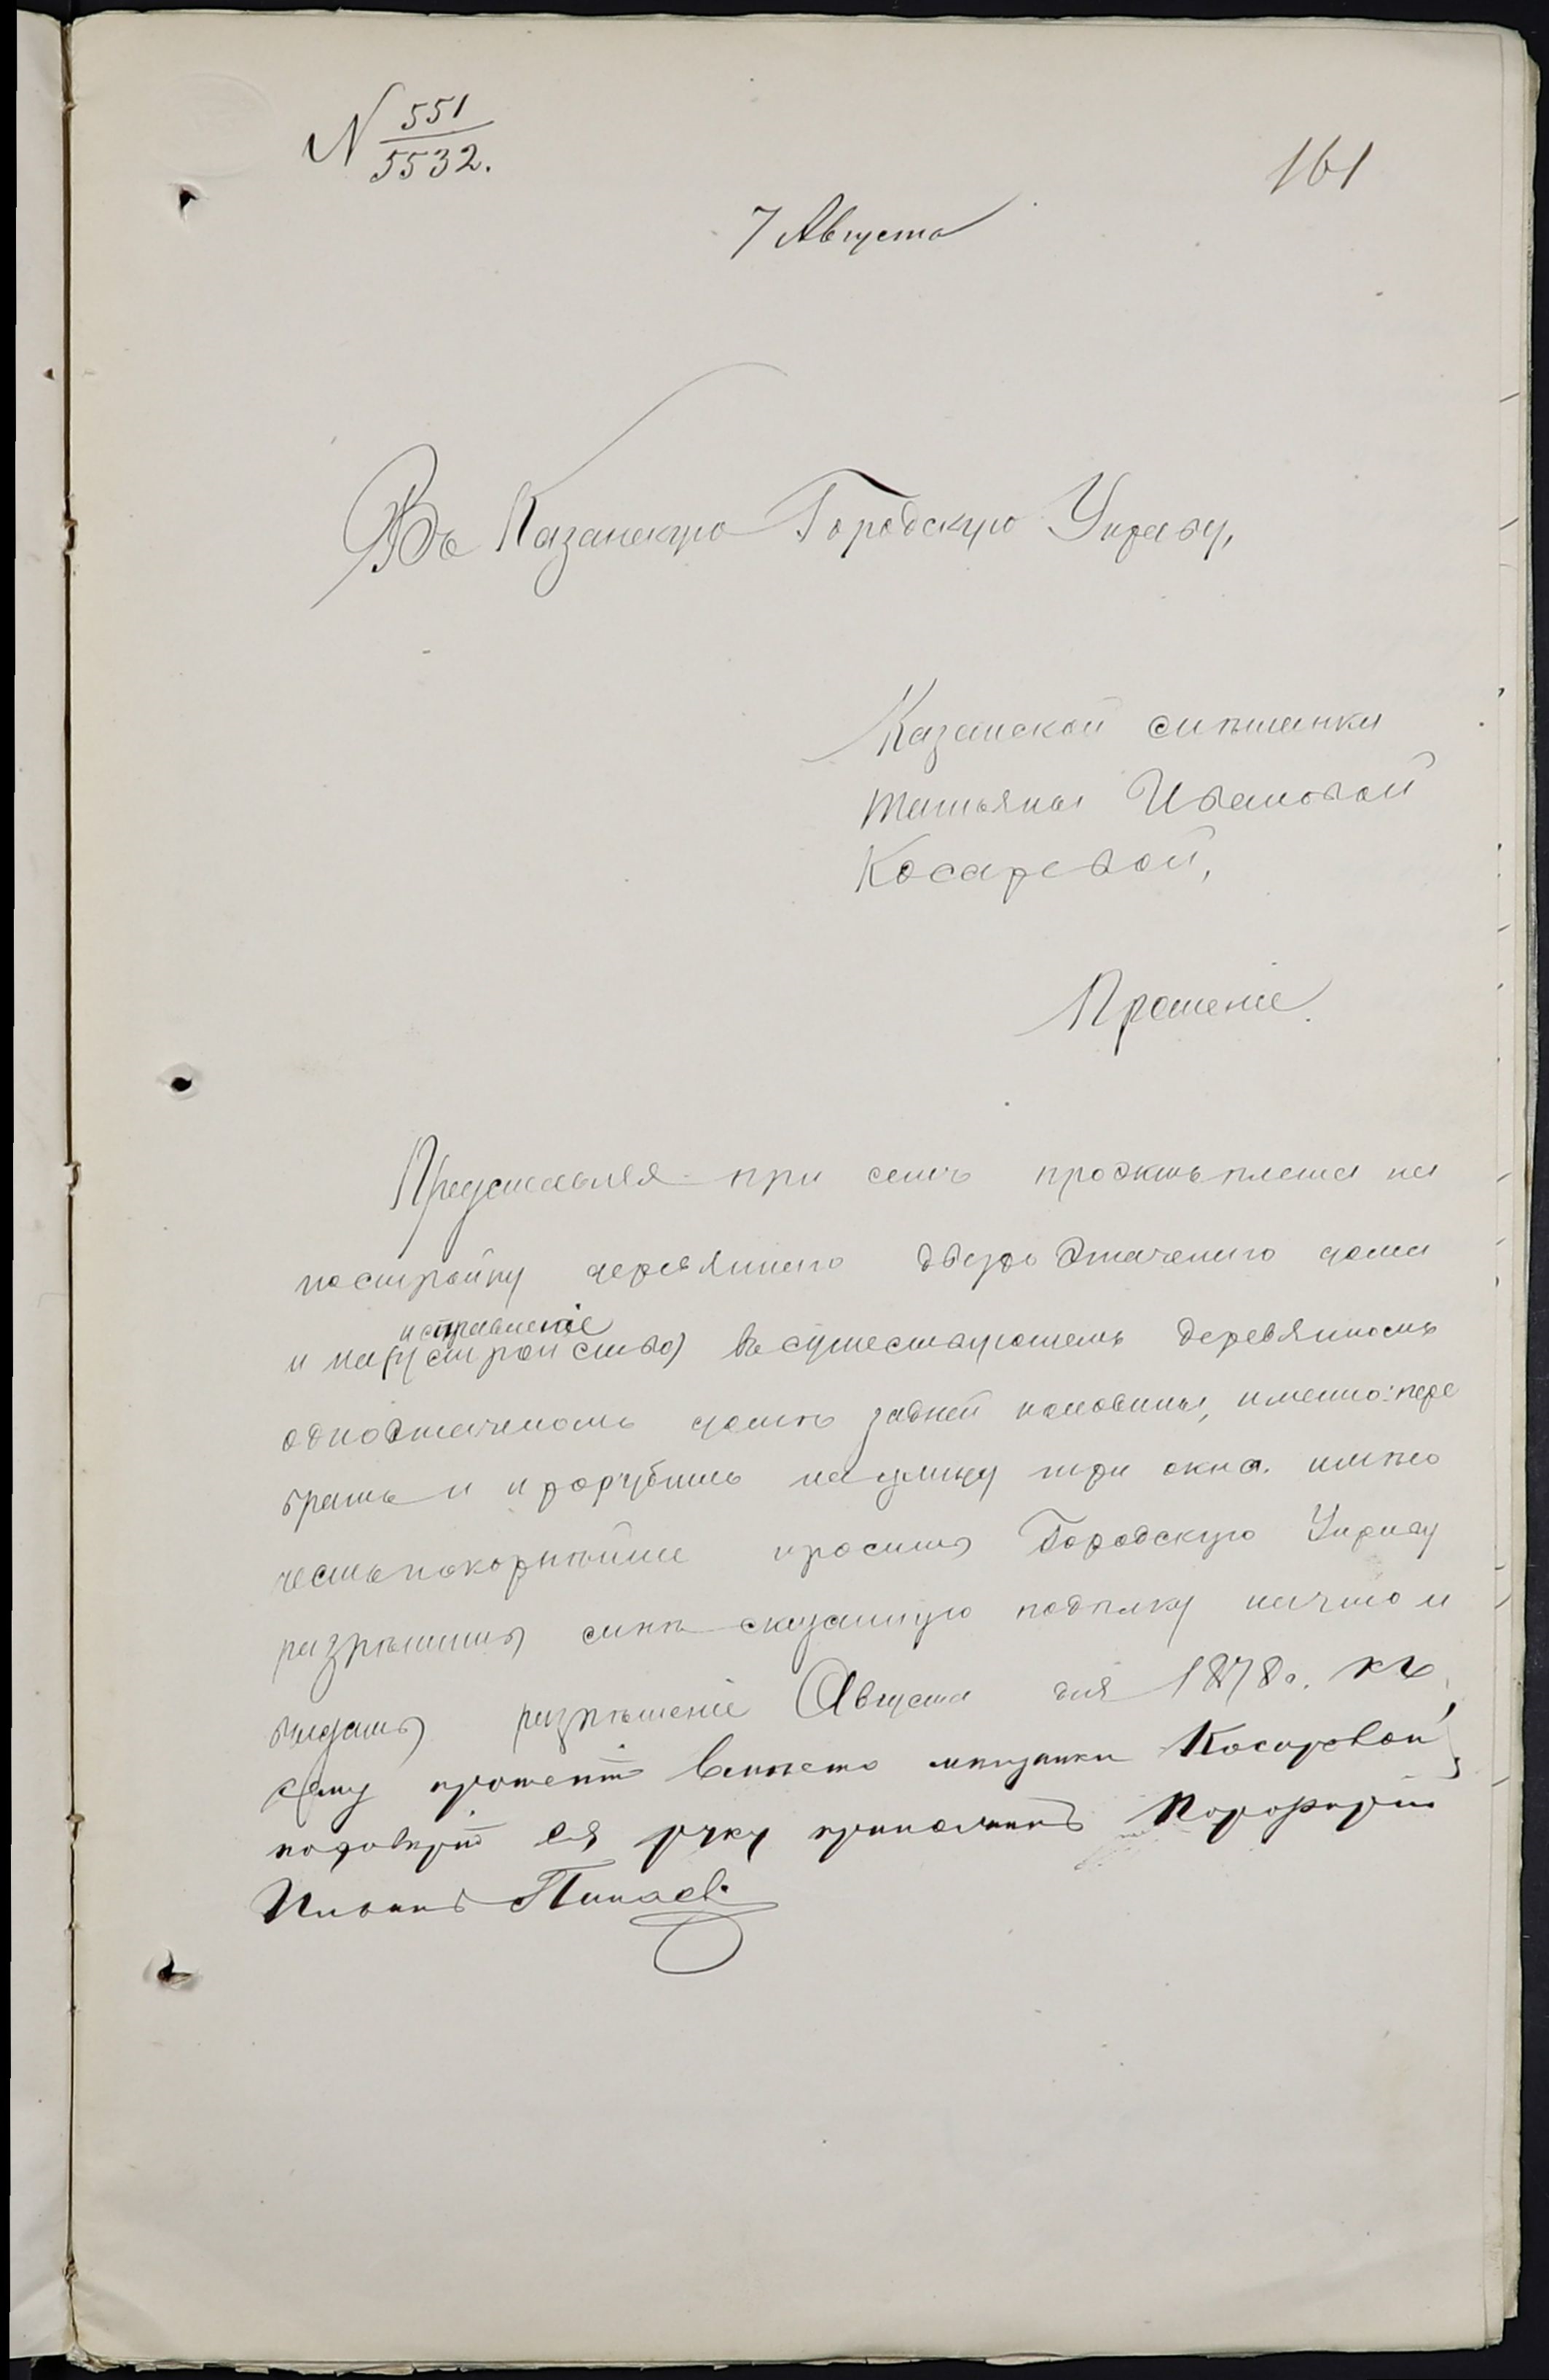 N 551/5532.
161
7 Августа
Въ Казанскую Городскую Управу,
Казанской мѣщанки
Татьяны Ивановой
Косаревой,
Прошеніе.
Представляя при семъ проэктъ плана на
постройку деревяннаго двухъ этажнаго дома
исправленіе
и на (устройство) въ существующемъ деревянномъ
одноэтажномъ домѣ задней половины, именно: пере
брать и прорубить на улицу три окна. имѣю
честь покорнѣйше просить Городскую Управу
разрѣшить мнѣ сказанную подѣлку на что и
выдать разрѣшеніе Августа дня 1878 г. Къ
сему прошенію вмѣсто мѣщанки Косаревой,
по довѣрію ея руку приложилъ Порфирій
Пинаевъ